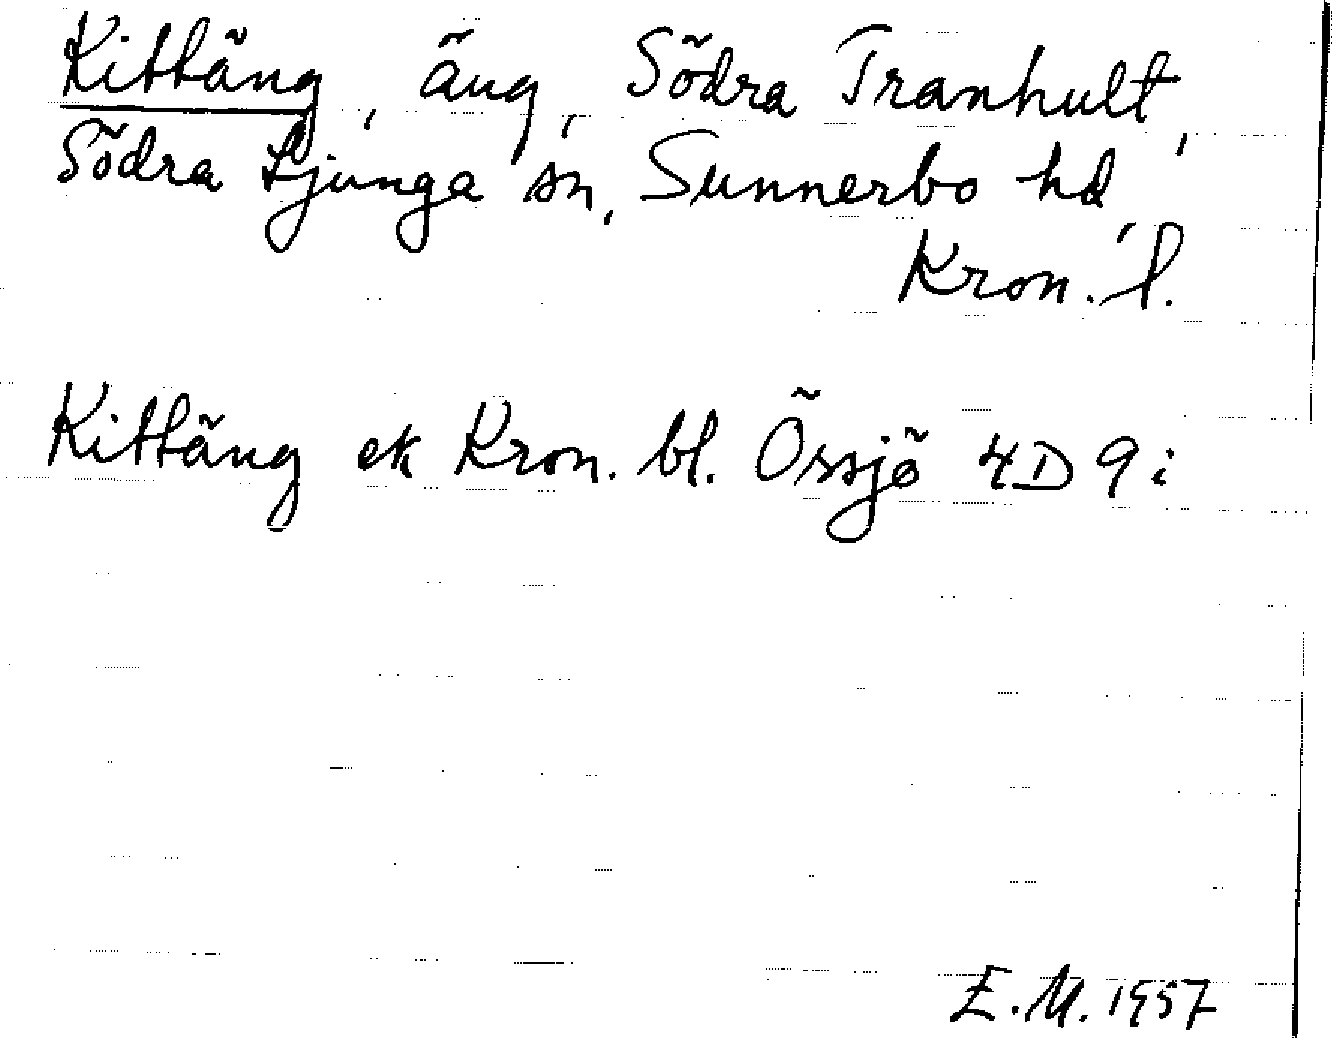 Kittäng, äng, Södra Tranhult,
Södra Ljunga sn, Sunnerbo hd,
Kron. l.
Kittäng ek Kron. bl. Össjö 4D 9i
E.M. 1957